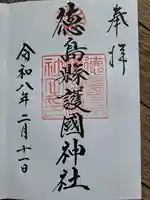 奉拝
徳島縣護國神社
令和八年二月十一日